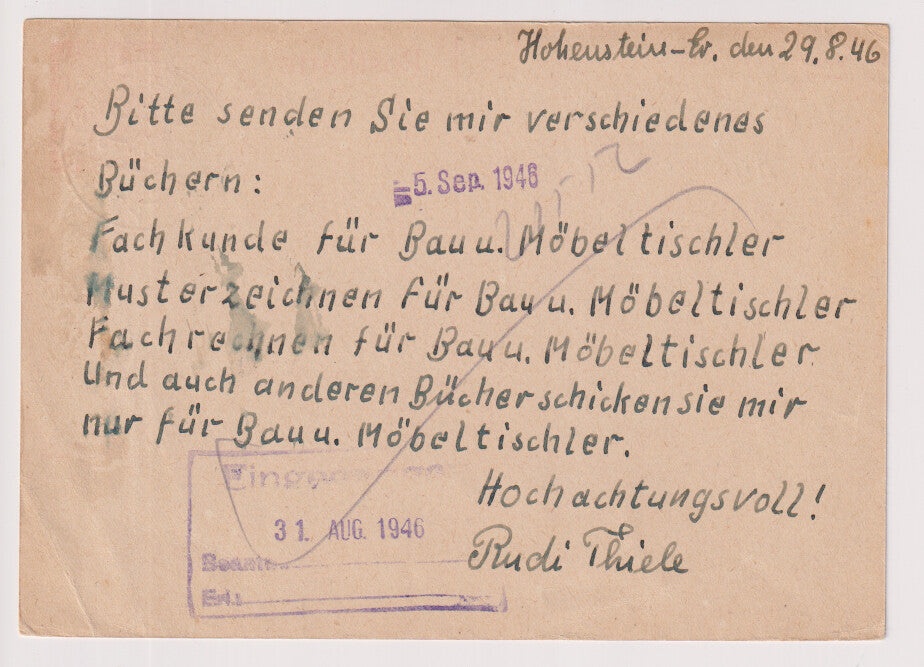 Hohenstein-Er. den 29.8.46
Bitte senden Sie mir verschiedenes
Büchern:
5. Sep. 1946
Fachkunde für Bau u. Möbeltischler
Musterzeichnen für Bau u. Möbeltischler
Fachrechnen für Bau u. Möbeltischler
Und auch anderen Bücher schicken sie mir
nur für Bau u. Möbeltischler.
Hochachtungsvoll!
31. AUG. 1946
Rudi Thiele